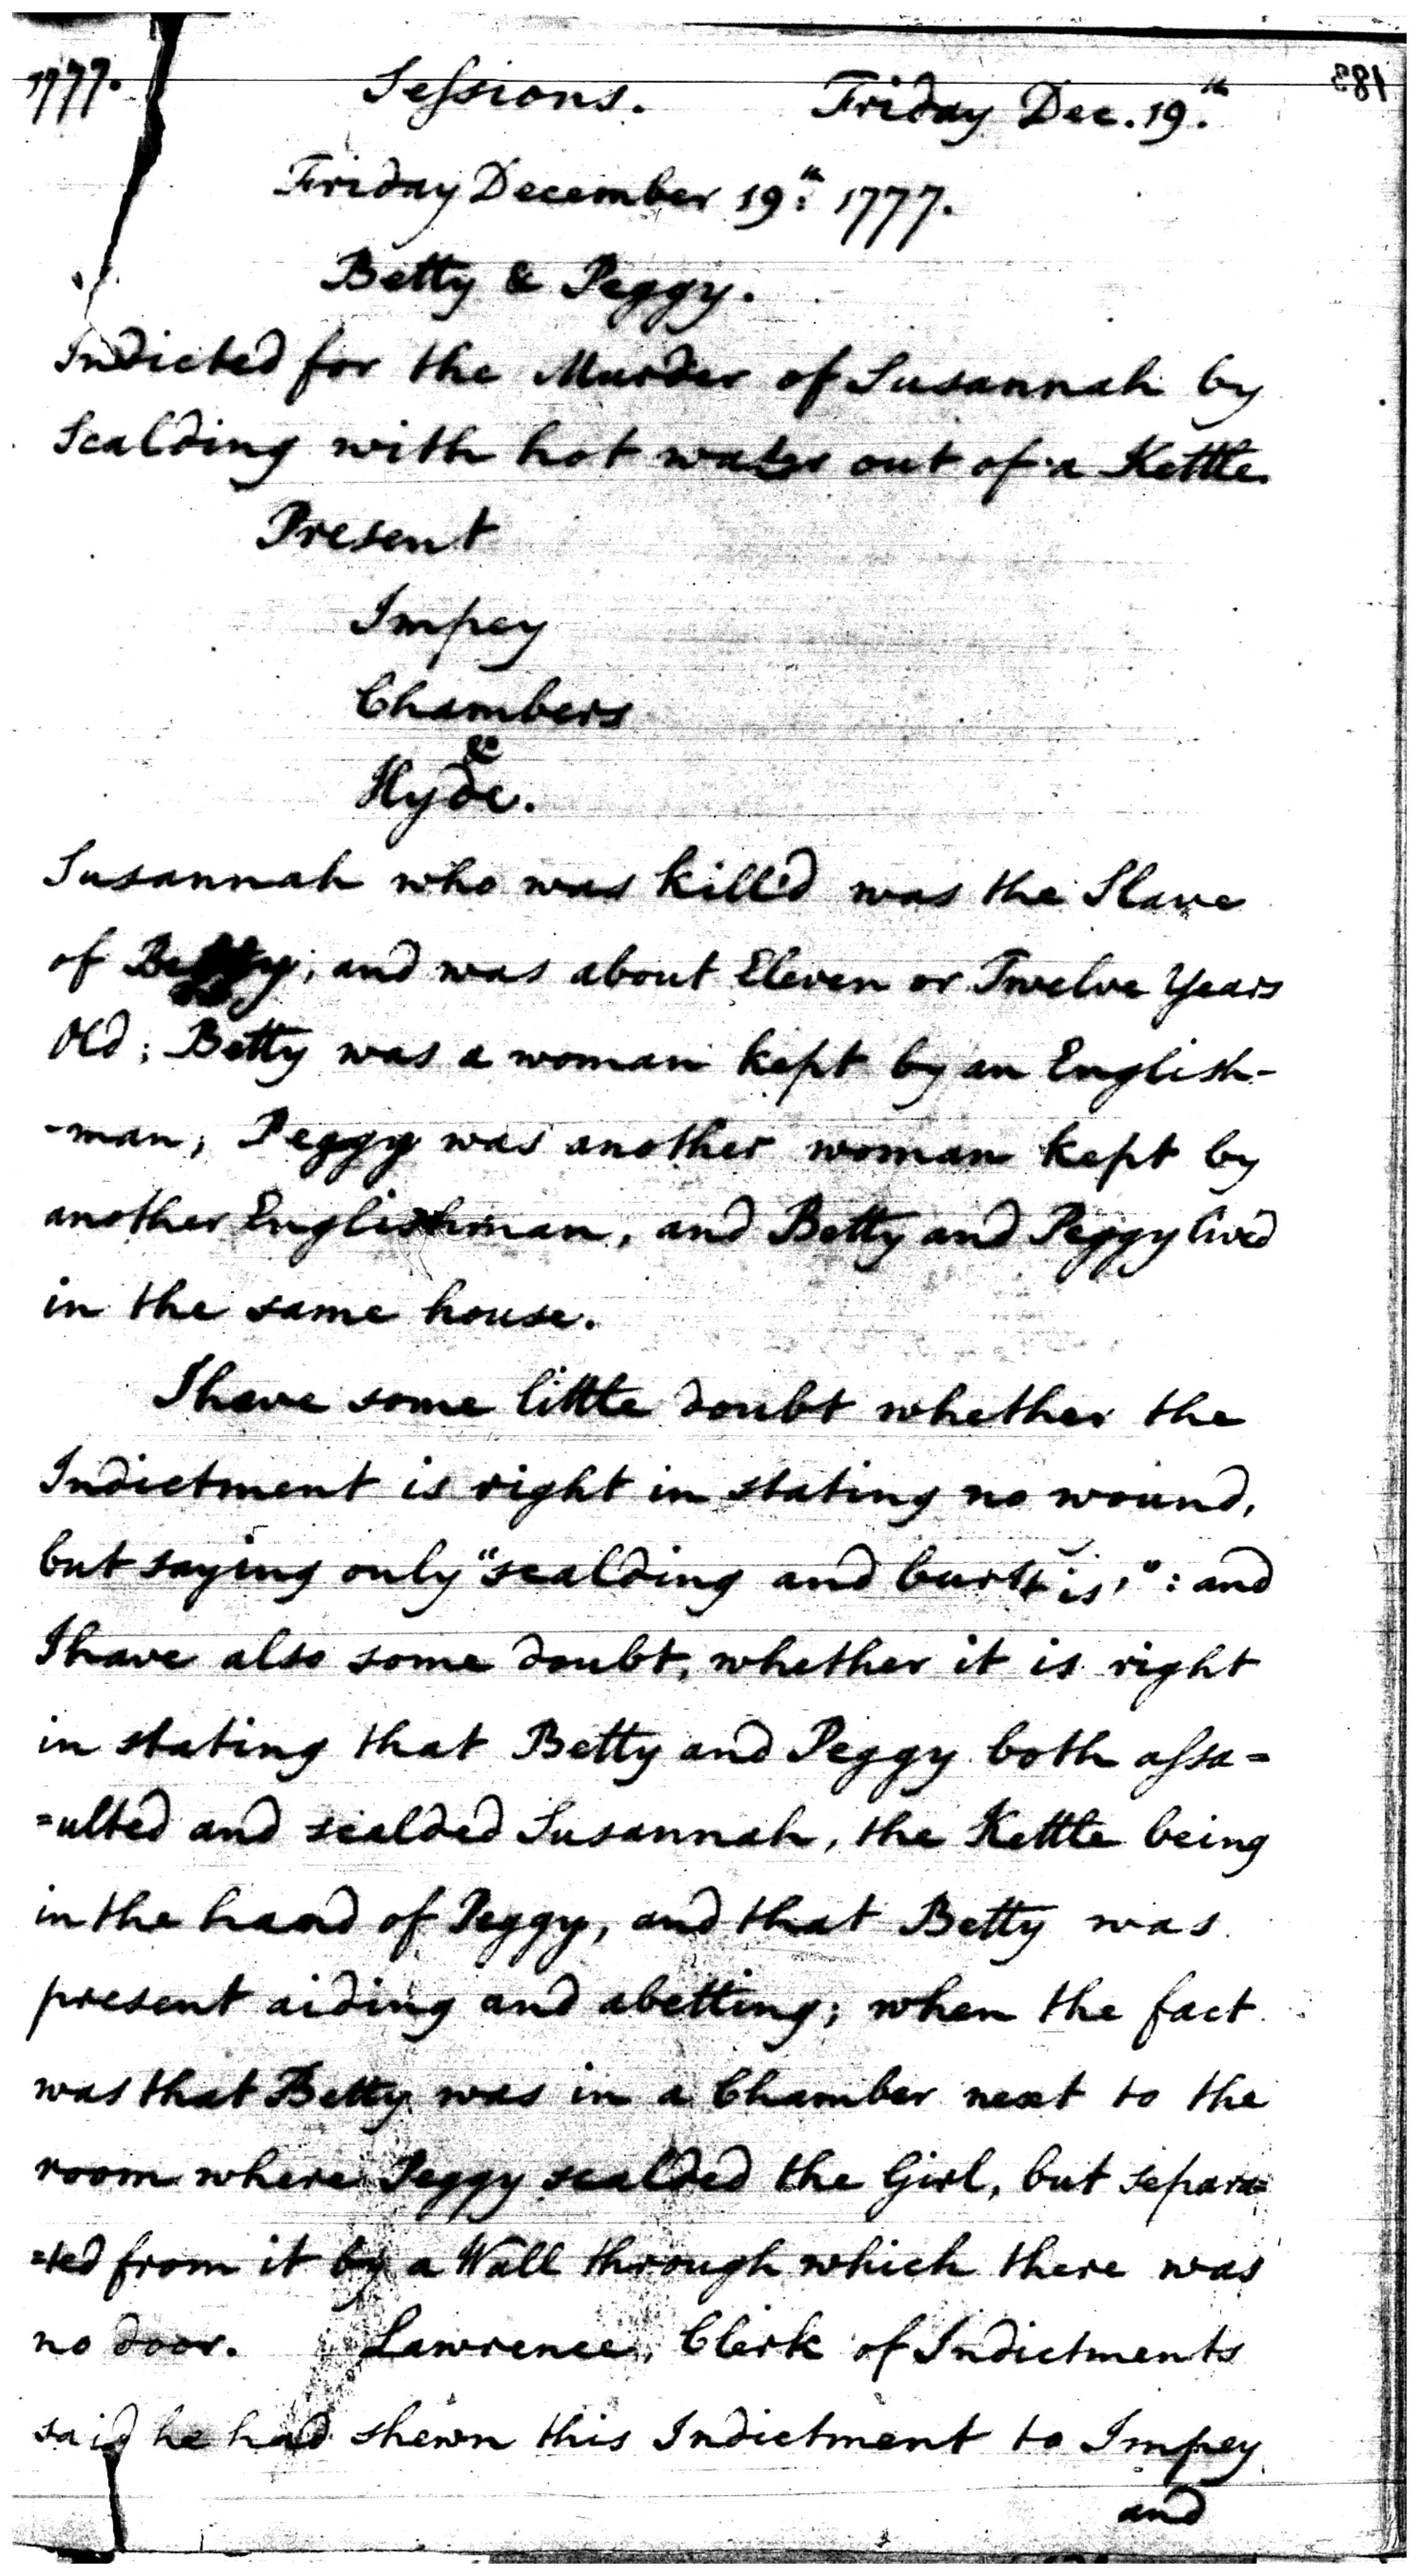 1777. Sessions. Friday Dec. 19.th 183
Friday December 19.th 1777.
Betty & Peggy.
Indicted for the Murder of Susannah by
Scalding with hot water out of a Kettle.
Present
Impey
Chambers
&
Hyde.
Susannah who was kill'd was the Slave
of Betty; and was about Eleven or Twelve Years
Old; Betty was a woman kept by an English-
-man; Peggy was another woman kept by
another Englishman, and Betty and Peggy liv'd
in the same house.
I have some little doubt whether the
Indictment is right in stating no wound,
but saying only "scalding and : and
I have also some doubt, whether it is right
in stating that Betty and Peggy both assa=
=ulted and scalded Susannah, the Kettle being
in the hand of Peggy, and that Betty was
present aiding and abetting; when the fact
was that Betty was in a Chamber next to the
room where Peggy scalded the Girl, but separa=
=ted from it by a Wall through which there was
no door. Lawrence, Clerk of Indictments
said he had shewn this Indictment to Impey
and